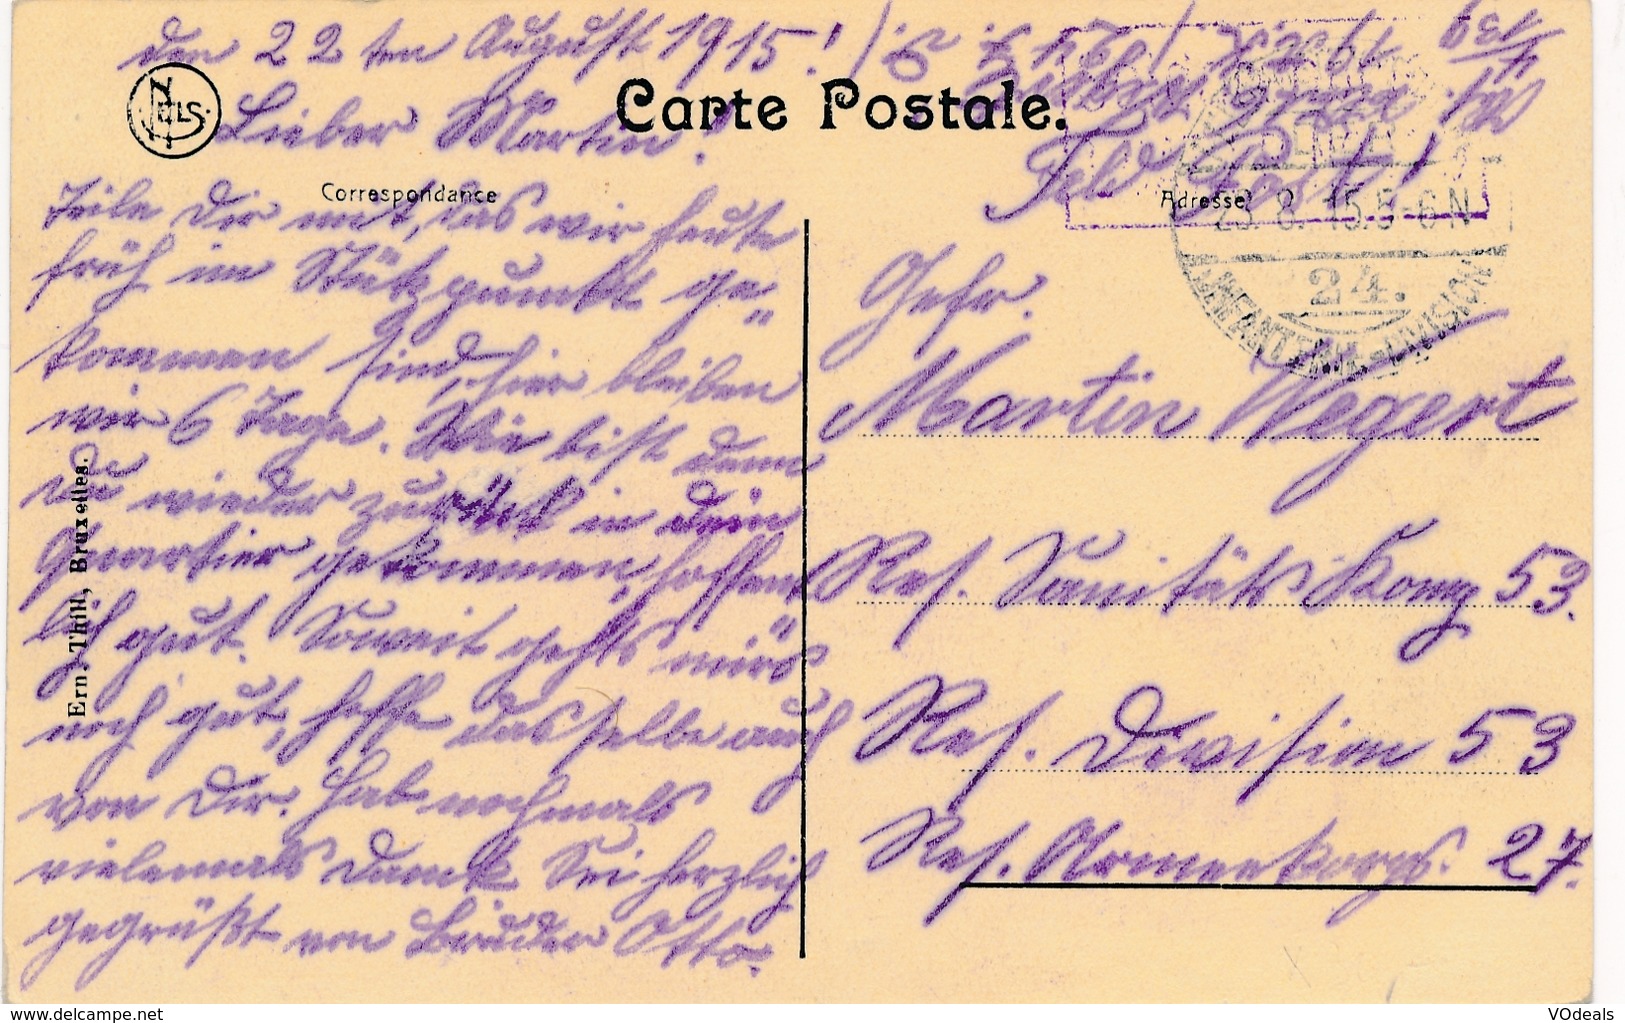 den 22ten August 1915!
Lieber Martin!
Teile Dir mit, das wir heute
früh im Stützpunkt ge-
kommen sind, hier bleiben
wir 6 Tage. Wie bist denn
Du wieder zurück in dein
Quartier gekommen, hoffent-
lich gut. Soweit gehts mirs
noch gut, hoffe dasselbe auch
von Dir. Hab nochmals
vielemals Dank. Sei herzlich
gegrüßt von Bruder Otto.
NELS.
Carte Postale.
Correspondance
Adresse
Ern. Thill, Bruxelles.
Feld Post!
23.8.15.5-6N
24.
INFANTERIE-DIVISION
Gefr.
Martin Wegert
Res. Sanitäts Komp 53.
Res. Division 53
Res. Armeekorps. 27.
www.delcampe.net
VOdeals